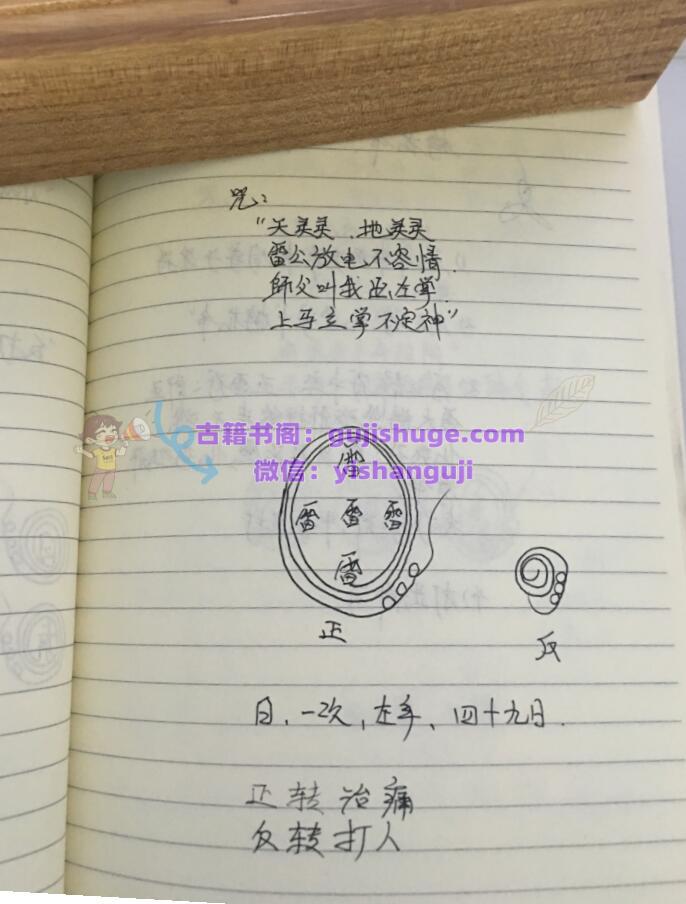 咒：
“天灵灵、地灵灵
雷公放电不容情.
師父叫我运左掌.
上马立掌不定神”
古籍书阁：gujishuge.com
微信：yishanguji
雷
雷 雷 雷
雷
正
反
日、一次，左手、四十九日.
正转治痛
反转打人